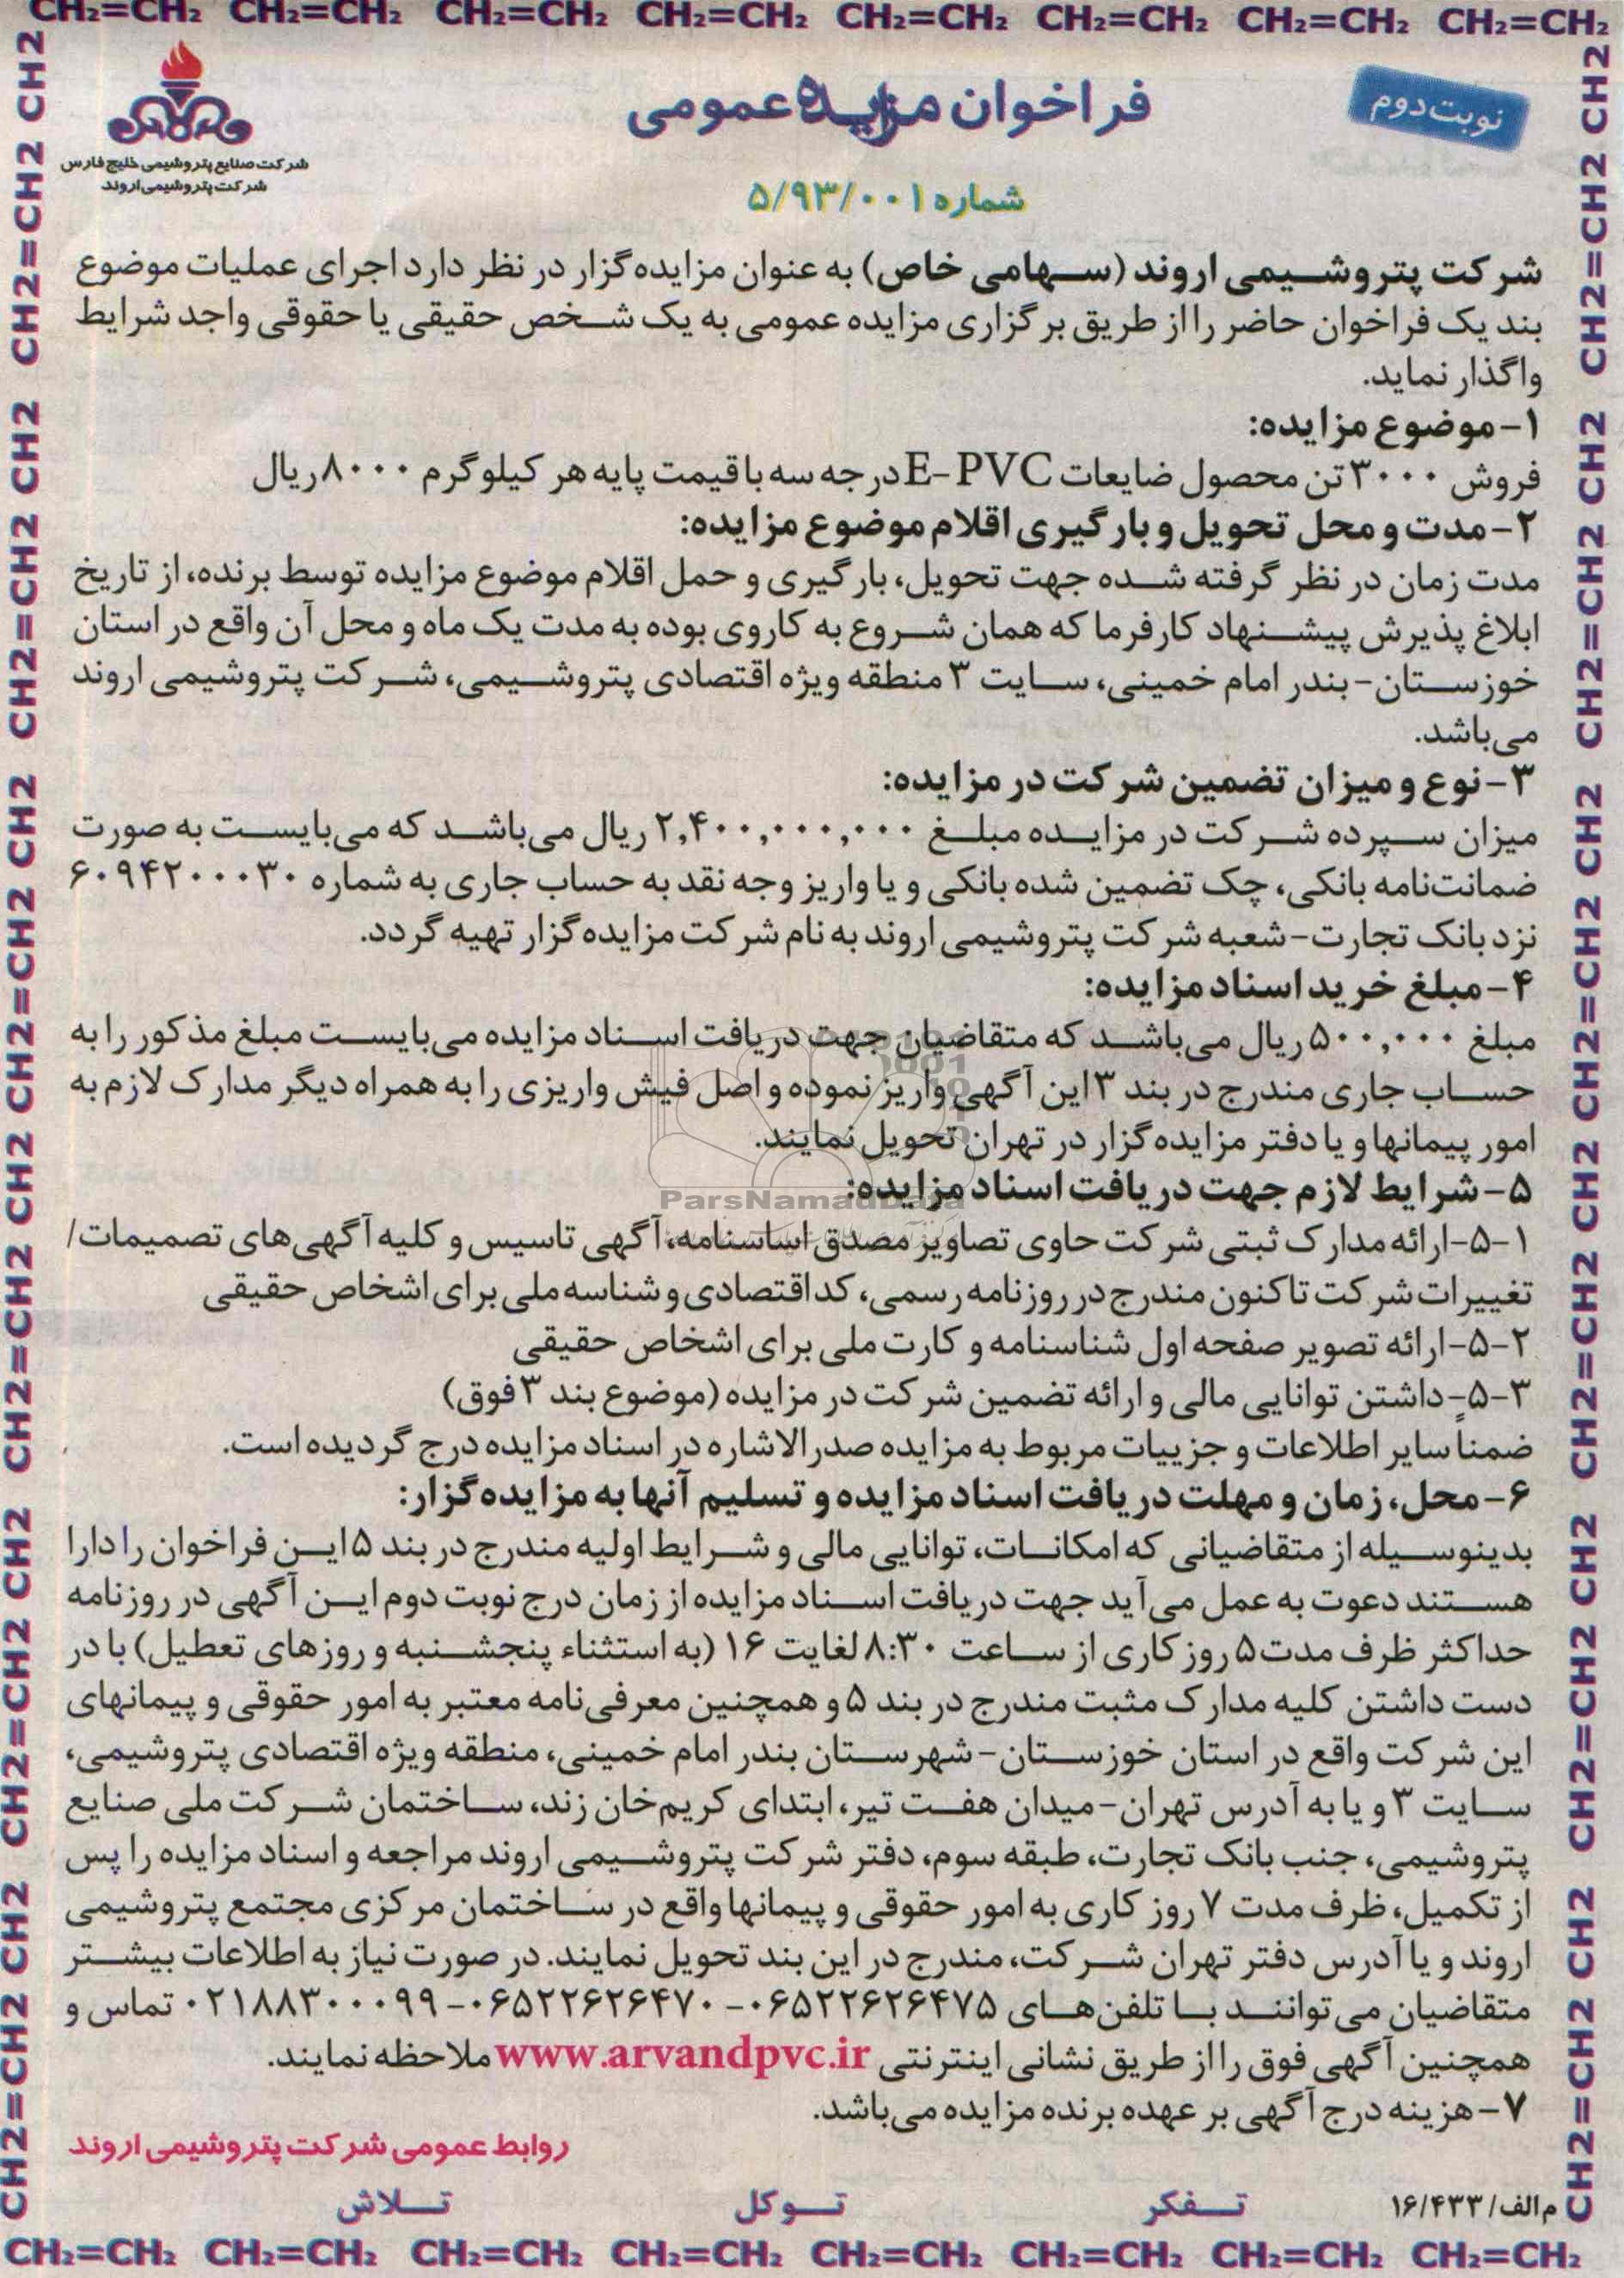 CH₂=CH₂ CH₂=CH₂ CH₂=CH₂ CH₂=CH₂ CH₂=CH₂ CH₂=CH₂ CH₂=CH₂ CH₂=CH₂
نوبت دوم
فراخوان مزایده عمومی
شرکت صنایع پتروشیمی خلیج فارس
شرکت پتروشیمی اروند
شماره ۵/۹۳/۰۰۱
شرکت پتروشیمی اروند (سهامی خاص) به عنوان مزایده‌گزار در نظر دارد اجرای عملیات موضوع
بند یک فراخوان حاضر را از طریق برگزاری مزایده عمومی به یک شخص حقیقی یا حقوقی واجد شرایط
واگذار نماید.
۱- موضوع مزایده:
فروش ۳۰۰۰ تن محصول ضایعات E-PVC درجه سه با قیمت پایه هر کیلوگرم ۸۰۰۰ ریال
۲- مدت و محل تحویل و بارگیری اقلام موضوع مزایده:
مدت زمان در نظر گرفته شده جهت تحویل، بارگیری و حمل اقلام موضوع مزایده توسط برنده، از تاریخ
ابلاغ پذیرش پیشنهاد کارفرما که همان شروع به کار وی بوده به مدت یک ماه و محل آن واقع در استان
خوزستان- بندر امام خمینی، سایت ۳ منطقه ویژه اقتصادی پتروشیمی، شرکت پتروشیمی اروند
می‌باشد.
۳- نوع و میزان تضمین شرکت در مزایده:
میزان سپرده شرکت در مزایده مبلغ ۲,۴۰۰,۰۰۰,۰۰۰ ریال می‌باشد که می‌بایست به صورت
ضمانت‌نامه بانکی، چک تضمین شده بانکی و یا واریز وجه نقد به حساب جاری به شماره ۶۰۹۴۲۰۰۰۳۰
نزد بانک تجارت- شعبه شرکت پتروشیمی اروند به نام شرکت مزایده‌گزار تهیه گردد.
۴- مبلغ خرید اسناد مزایده:
مبلغ ۵۰۰,۰۰۰ ریال می‌باشد که متقاضیان جهت دریافت اسناد مزایده می‌بایست مبلغ مذکور را به
حساب جاری مندرج در بند ۳ این آگهی واریز نموده و اصل فیش واریزی را به همراه دیگر مدارک لازم به
امور پیمانها و یا دفتر مزایده‌گزار در تهران تحویل نمایند.
ParsNamadData
۵- شرایط لازم جهت دریافت اسناد مزایده:
۵-۱- ارائه مدارک ثبتی شرکت حاوی تصاویر مصدق اساسنامه، آگهی تاسیس و کلیه آگهی‌های تصمیمات/
تغییرات شرکت تاکنون مندرج در روزنامه رسمی، کد اقتصادی و شناسه ملی برای اشخاص حقیقی
۵-۲- ارائه تصویر صفحه اول شناسنامه و کارت ملی برای اشخاص حقیقی
۵-۳- داشتن توانایی مالی و ارائه تضمین شرکت در مزایده (موضوع بند ۳ فوق)
ضمناً سایر اطلاعات و جزییات مربوط به مزایده صدرالاشاره در اسناد مزایده درج گردیده است.
۶- محل، زمان و مهلت دریافت اسناد مزایده و تسلیم آنها به مزایده‌گزار:
بدینوسیله از متقاضیانی که امکانات، توانایی مالی و شرایط اولیه مندرج در بند ۵ این فراخوان را دارا
هستند دعوت به عمل می‌آید جهت دریافت اسناد مزایده از زمان درج نوبت دوم این آگهی در روزنامه
حداکثر ظرف مدت ۵ روز کاری از ساعت ۸:۳۰ لغایت ۱۶ (به استثناء پنجشنبه و روزهای تعطیل) با در
دست داشتن کلیه مدارک مثبت مندرج در بند ۵ و همچنین معرفی‌نامه معتبر به امور حقوقی و پیمانهای
این شرکت واقع در استان خوزستان- شهرستان بندر امام خمینی، منطقه ویژه اقتصادی پتروشیمی،
سایت ۳ و یا به آدرس تهران- میدان هفت تیر، ابتدای کریم‌خان زند، ساختمان شرکت ملی صنایع
پتروشیمی، جنب بانک تجارت، طبقه سوم، دفتر شرکت پتروشیمی اروند مراجعه و اسناد مزایده را پس
از تکمیل، ظرف مدت ۷ روز کاری به امور حقوقی و پیمانها واقع در ساختمان مرکزی مجتمع پتروشیمی
اروند و یا آدرس دفتر تهران شرکت، مندرج در این بند تحویل نمایند. در صورت نیاز به اطلاعات بیشتر
متقاضیان می‌توانند با تلفن‌های ۰۶۵۲۲۶۲۶۴۷۵- ۰۶۵۲۲۶۲۶۴۷۰- ۰۲۱۸۸۳۰۰۰۹۹ تماس و
همچنین آگهی فوق را از طریق نشانی اینترنتی www.arvandpvc.ir ملاحظه نمایند.
۷- هزینه درج آگهی بر عهده برنده مزایده می‌باشد.
روابط عمومی شرکت پتروشیمی اروند
م الف/ ۱۶/۴۳۳
تفکر توکل تلاش
CH₂=CH₂ CH₂=CH₂ CH₂=CH₂ CH₂=CH₂ CH₂=CH₂ CH₂=CH₂ CH₂=CH₂ CH₂=CH₂